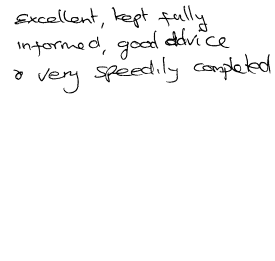 Excellent, kept fully
informed, good advice
& very speedily completed